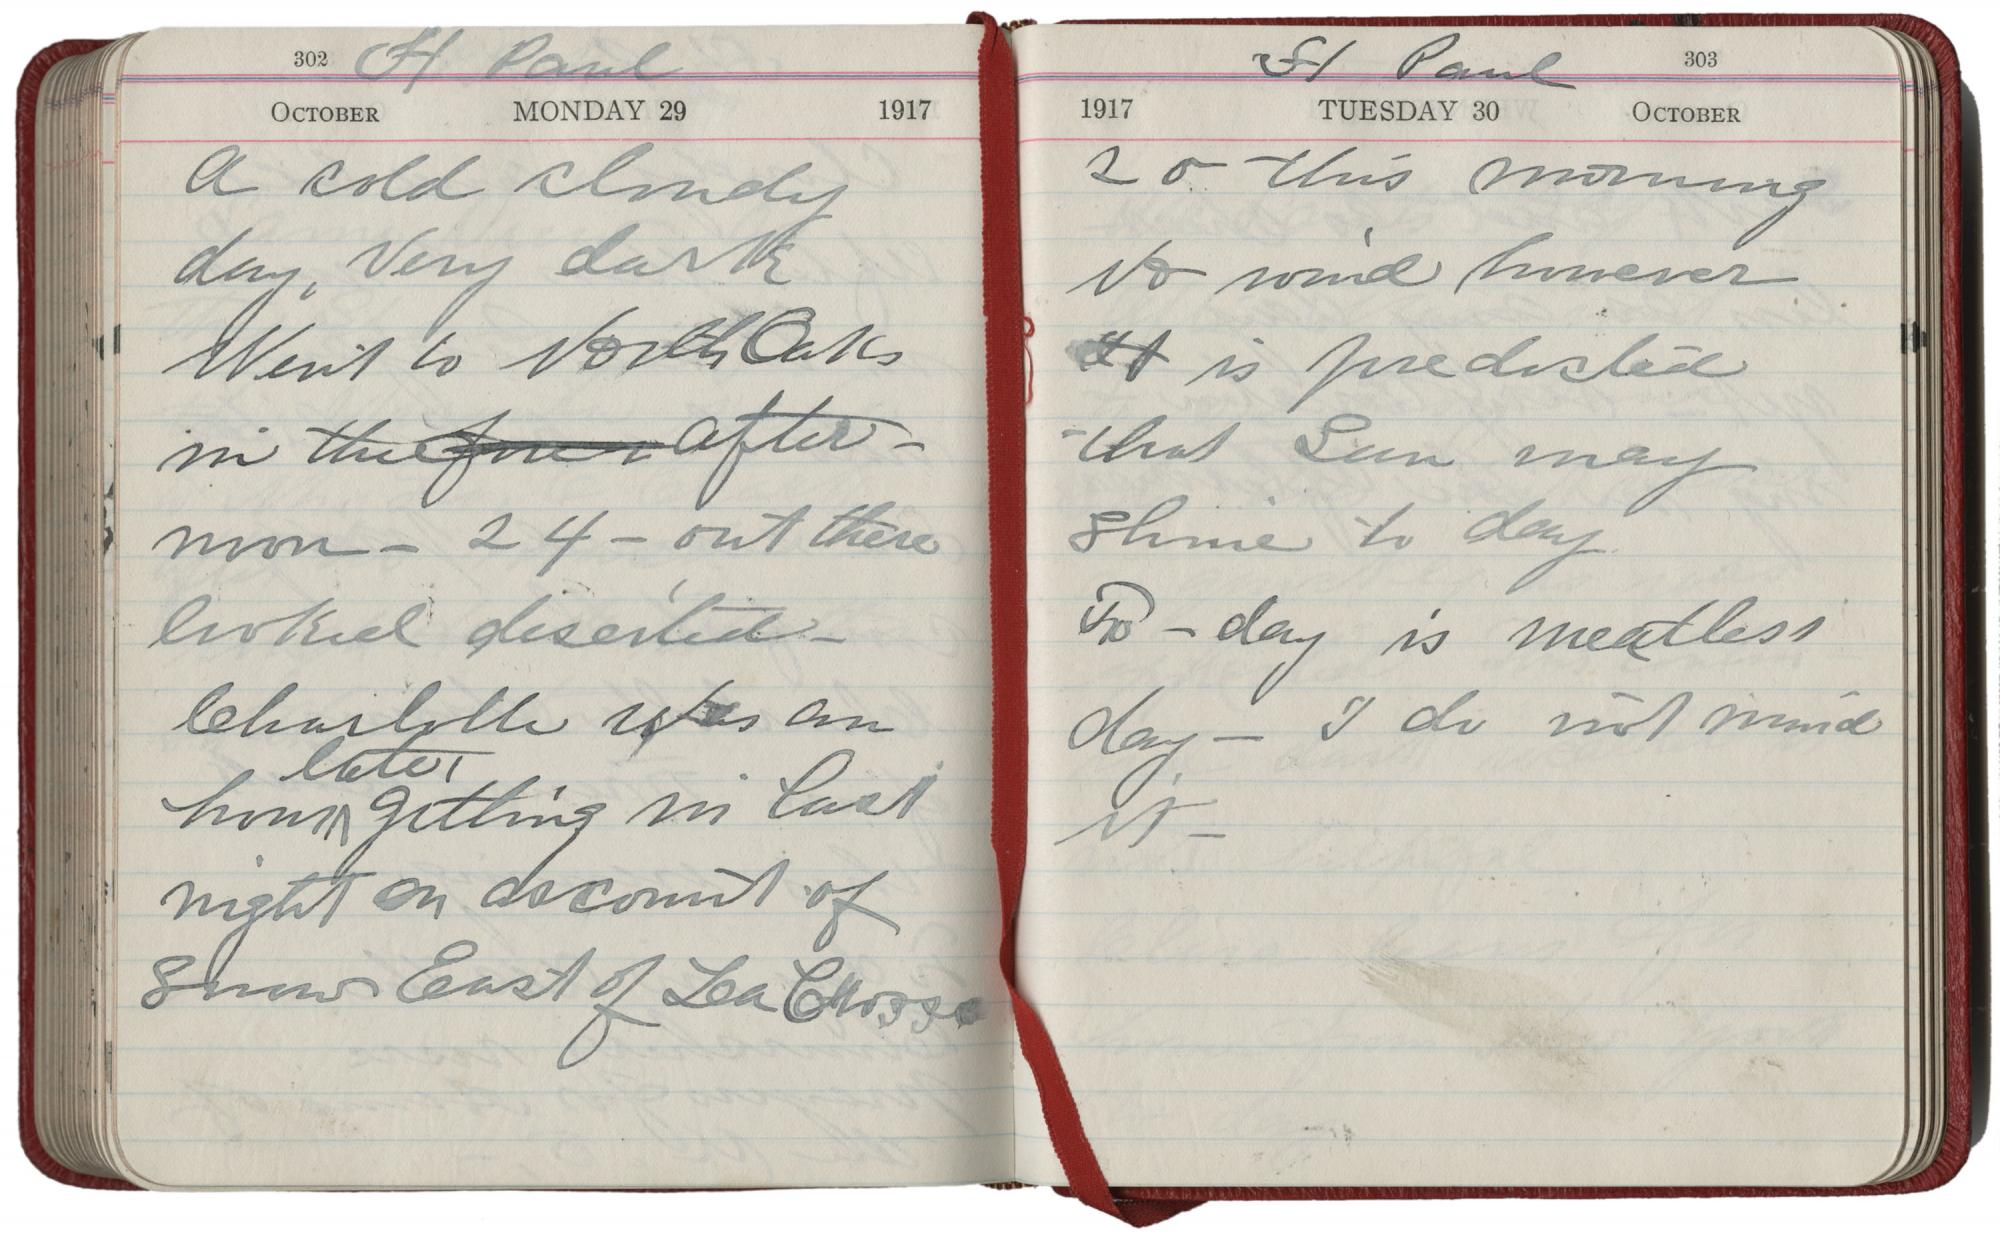 302 St Paul
October MONDAY 29 1917
A cold cloudy
day, Very dark
Went to North Oaks
in the fore after-
noon - 24 - out there
looked deserted -
Charlotte was an
later
hour getting in last
night on account of
Snow East of La Crosse
St Paul 303
1917 TUESDAY 30 October
20 this morning
No wind however
It is predicted
that Sun may
shine to day
To-day is meatless
day - I do not mind
it -